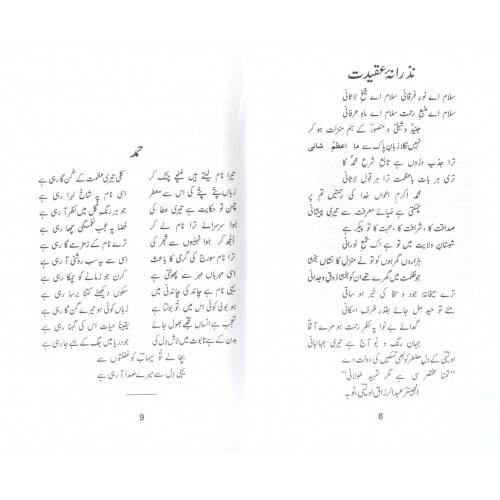 نذرانۂ عقیدت
سلام اے نورِ فرقانی سلام اے شیخِ لاثانی
سلام اے منبعِ رحمت سلام اے ماہِ عرفانی
جنیدؒ و شبلیؒ و منصورؒ کے ہم منزلت ہو کر
نہیں نکلا زبانِ پاک سے ما اعظم شانی
ترا جذب دروں ہے تابعِ شرعِ محمدؐ کا
تری ہر بات باعظمت ترا ہر قول لاثانی
محمد اکرم اعواں خدا کی رحمتیں تم پر
چمکتی ہے ضیائے معرفت سے تیری پیشانی
صداقت کا، شرافت کا، محبت کا تو پیکر ہے
شبستانِ ولایت میں تو ہے اک شمعِ نورانی
ہزاروں گمرہوں کو ہے تو نے منزل کا نشاں بخشا
جو ظلمت میں گھرے تھے ان کو بخشا ذوقِ وجدانی
ترے میخانۂ جود و سخا کی خیر ہو ساقی
مئے توحید مِل جائے بقدرِ ظرفِ امکانی
گدائے بے نوا پہ نظرِ رحمت ہو مرے آقا
جہانِ رنگ و بو آج ہے تیری جہانبانی
اویسی کے دلِ مضطر کو بھی تسکین کی دولت دے
"تمنا مختصر سی ہے مگر تمہید طولانی"
انجینئر عبدالرزاق اویسی، ٹوبہ
8
حمد
تیرا نام لیتے ہیں غنچے چٹک کر
کلی تیری عظمت کے گن گا رہی ہے
زباں پتے پتے کی اس سے معطر
اسی نام پہ شاخ لہرا رہی ہے
چمن تو حکایت ہے تیری عطا کی
جو ہر رنگِ گل میں نظر آ رہی ہے
ہوا سرسرائے ترا نام لے کر
فضا پہ عجب نغمگی چھا رہی ہے
اُلجھ کر ہوا ٹہنیوں سے شجر کی
ترے نام کے زمزمے گا رہی ہے
ترا نام سورج کی گرمی کا باعث
اسی سے یہ سب روشنی آ رہی ہے
اسی مہرباں مہر سے پھوٹتی ہے
کرن جو زمانے کو چمکا رہی ہے
یہی نام ہے چاند کی چاندنی میں
سکوں دیکھئے کتنا برسا رہی ہے
ہو بولی کوئی اس میں تُو بولتا ہے
زباں کوئی ہو تیرے گن گا رہی ہے
تعجب ہے انساں تجھے بھول جائے
یقیناً حیات اس کی گہنا رہی ہے
بدن کے ہے تابوت میں لاش دل کی
جو دریا میں جگ کے بہے جا رہی ہے
بچا لے تُو سیماب کو غفلتوں سے
یہی دل سے میرے صدا آ رہی ہے
9